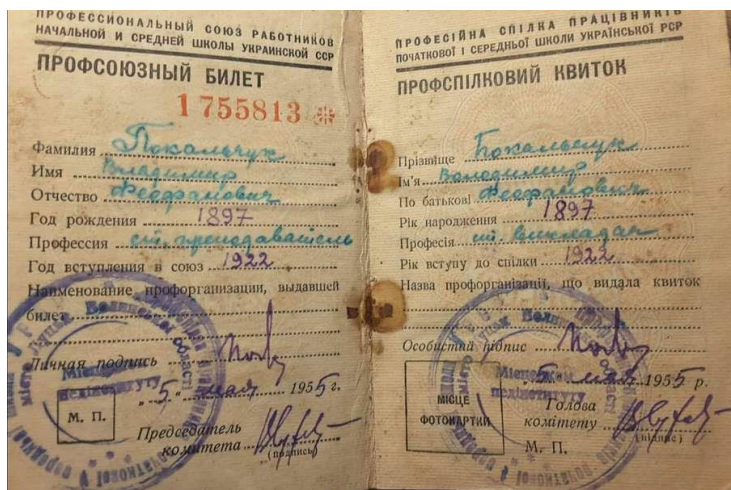 ПРОФЕССИОНАЛЬНЫЙ СОЮЗ РАБОТНИКОВ
НАЧАЛЬНОЙ И СРЕДНЕЙ ШКОЛЫ УКРАИНСКОЙ ССР
ПРОФСОЮЗНЫЙ БИЛЕТ
1755813
Фамилия Покальчук
Имя Владимир
Отчество Феофанович
Год рождения 1897
Профессия ст. преподаватель
Год вступления в союз 1922
Наименование профорганизации, выдавшей
билет
Личная подпись
"5" мая 1955 г.
М. П.
Председатель
комитета
(подпись)
Місцевий
педінституту
місто Луцьк Волинської області
ПРОФЕСІЙНА СПІЛКА ПРАЦІВНИКІВ
ПОЧАТКОВОЇ І СЕРЕДНЬОЇ ШКОЛИ УКРАЇНСЬКОЇ РСР
ПРОФСПІЛКОВИЙ КВИТОК
Прізвище Покальчук
Ім'я Володимир
По батькові Феофанович
Рік народження 1897
Професія ст. викладач
Рік вступу до спілки 1922
Назва профорганізації, що видала квиток
Особистий підпис
"5" мая 1955 р.
МІСЦЕ
ФОТОКАРТКИ
Голова
комітету
(підпис)
М. П.
Місцевий
педінституту